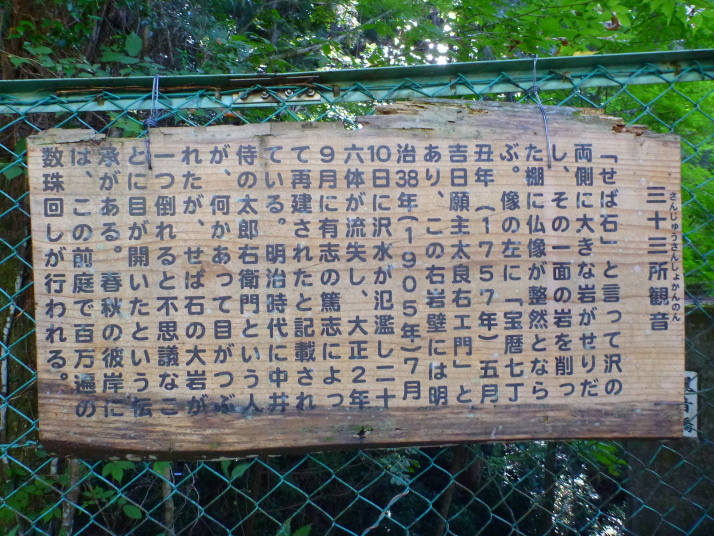 さんじゅうさんしょかんのん
三十三所観音
「せば石」と言って沢の
両側に大きな岩がせりだ
し、その一面の岩を削っ
た棚に仏像が整然となら
ぶ。像の左に「宝暦七丁
丑年（1757年）五月
吉日願主太良右エ門」と
あり、この右岩壁には明
治38年（1905年）7月
10日に沢水が氾濫し二十
六体が流失し、大正2年
9月に有志の篤志によっ
て再建されたと記載され
ている。明治時代に中井
侍の太郎右衛門という人
が、何かあって目がつぶ
れたが、せば石の大岩が
一つ倒れると不思議なこ
とに目が開いたという伝
承がある。春秋の彼岸に
は、この前庭で百万遍の
数珠回しが行われる。